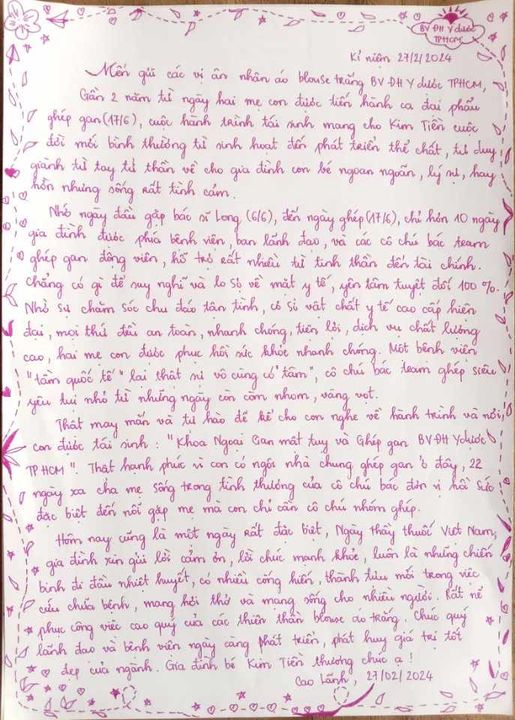 BV ĐH Y dược
TPHCM
Kỉ niệm 27/2/2024
Mến gửi các vị ân nhân áo blouse trắng BV ĐH Y dược TPHCM,
Gần 2 năm từ ngày hai mẹ con được tiến hành ca đại phẫu
ghép gan (17/6), cuộc hành trình tái sinh mang cho Kim Tiền cuộc
đời mới bình thường từ sinh hoạt đến phát triển thể chất, tư duy,
giành từ tay tử thần về cho gia đình con bé ngoan ngoãn, lý sự, hay
hờn nhưng sống rất tình cảm.
Nhớ ngày đầu gặp bác sĩ Long (6/6), đến ngày ghép (17/6), chỉ hơn 10 ngày
gia đình được phía bệnh viện, ban lãnh đạo, và các cô chú bác team
ghép gan động viên, hỗ trợ rất nhiều từ tinh thần đến tài chính.
Chẳng có gì để suy nghĩ và lo sợ về mặt y tế, yên tâm tuyệt đối 100%.
Nhờ sự chăm sóc chu đáo tận tình, cơ sở vật chất y tế cao cấp hiện
đại, mọi thứ đều an toàn, nhanh chóng, tiện lợi, dịch vụ chất lượng
cao, hai mẹ con được phục hồi sức khỏe nhanh chóng. Một bệnh viện
"tầm quốc tế" lại thật sự vô cùng có "tâm", cô chú bác team ghép siêu
yêu tụi nhỏ từ những ngày còn còm nhom, vàng vọt.
Thật may mắn và tự hào để kể cho con nghe về hành trình và nơi
con được tái sinh : "Khoa Ngoại Gan mật tụy và Ghép gan BV ĐH Y dược
TP HCM". Thật hạnh phúc vì con có ngôi nhà chung ghép gan ở đây, 22
ngày xa cha mẹ sống trong tình thương của cô chú bác đơn vị hồi sức
đặc biệt đến nỗi gặp mẹ mà con chỉ cần cô chú nhóm ghép.
Hôm nay cũng là một ngày rất đặc biệt, Ngày thầy thuốc Việt Nam,
gia đình xin gửi lời cảm ơn, lời chúc mạnh khỏe, luôn là những chiến
binh đi đầu nhiệt huyết, có nhiều cống hiến, thành tựu mới trong việc
cứu chữa bệnh, mang hơi thở và mạng sống cho nhiều người. Rất nể
phục công việc cao quý của các thiên thần blouse áo trắng. Chúc quý
lãnh đạo và bệnh viện ngày càng phát triển, phát huy giá trị tốt
đẹp của ngành. Gia đình bé Kim Tiền thương chúc ạ!
Cao Lãnh, 27/02/2024